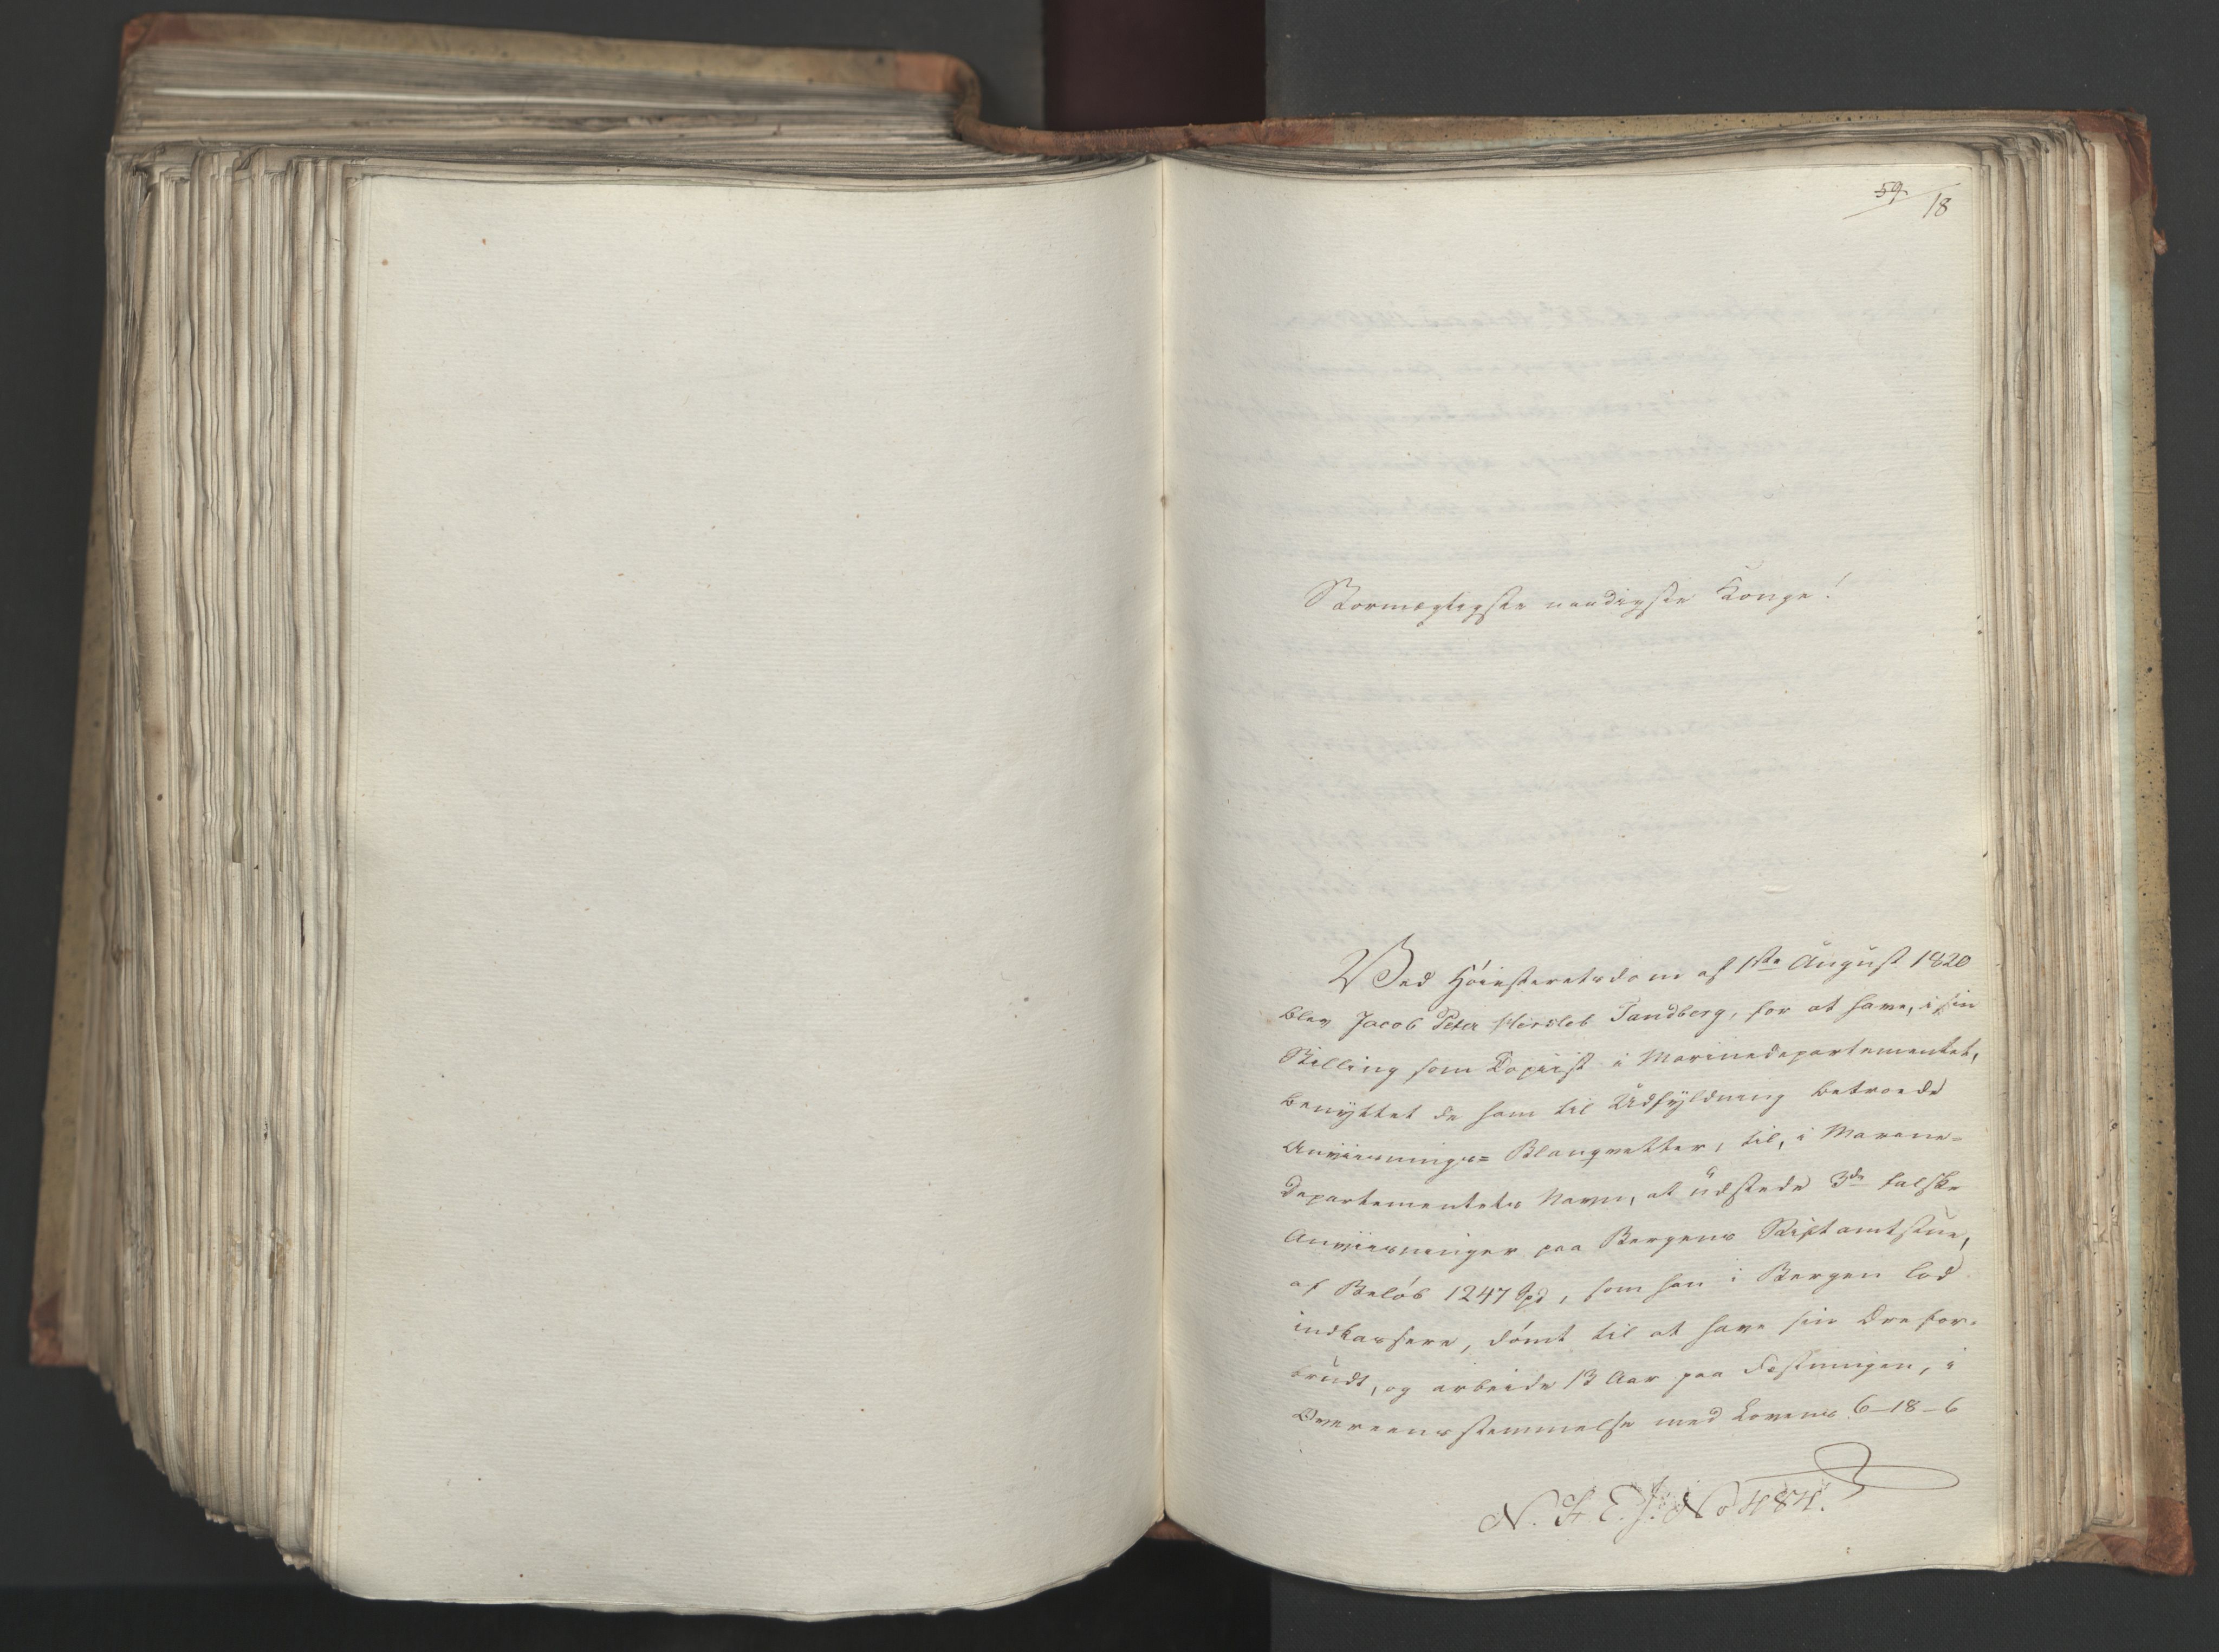 59
18
Stormægtigste naadigste Konge!
Ved Høiesteretsdom af 1ste August 1820
blev Jacob Peter Hersleb Sandberg, for at have, i sin
Stilling som Copiist i Marinedepartementet,
benyttet de ham til Udfyldning betroede
Anviisnings= Blanqvetter, til, i Marine=
departementets Navn, at udstede 3de falske
Anviisninger paa Bergens Stiftamtstue,
af Beløb 1247 Spd, som han i Bergen lod
indkassere, dømt til at have sin Ære for-
brudt, og arbeide 13 Aar paa Fæstningen, i
Overeensstemmelse med Lovens 6-18-6
N. F. E. J. No 484.